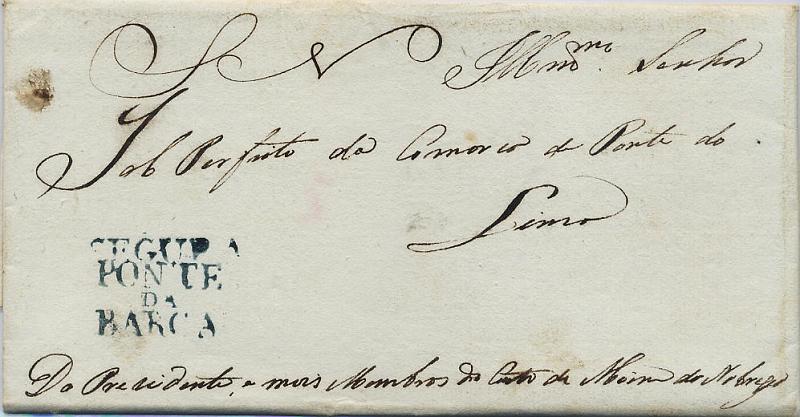 S N Illmo. Senhor
Sub Perfeito da Comarca de Ponte do
Lima
SEGURA
PONTE
DA
BARCA
Do Presidente, e mais Membros da de Moim da Nobrega